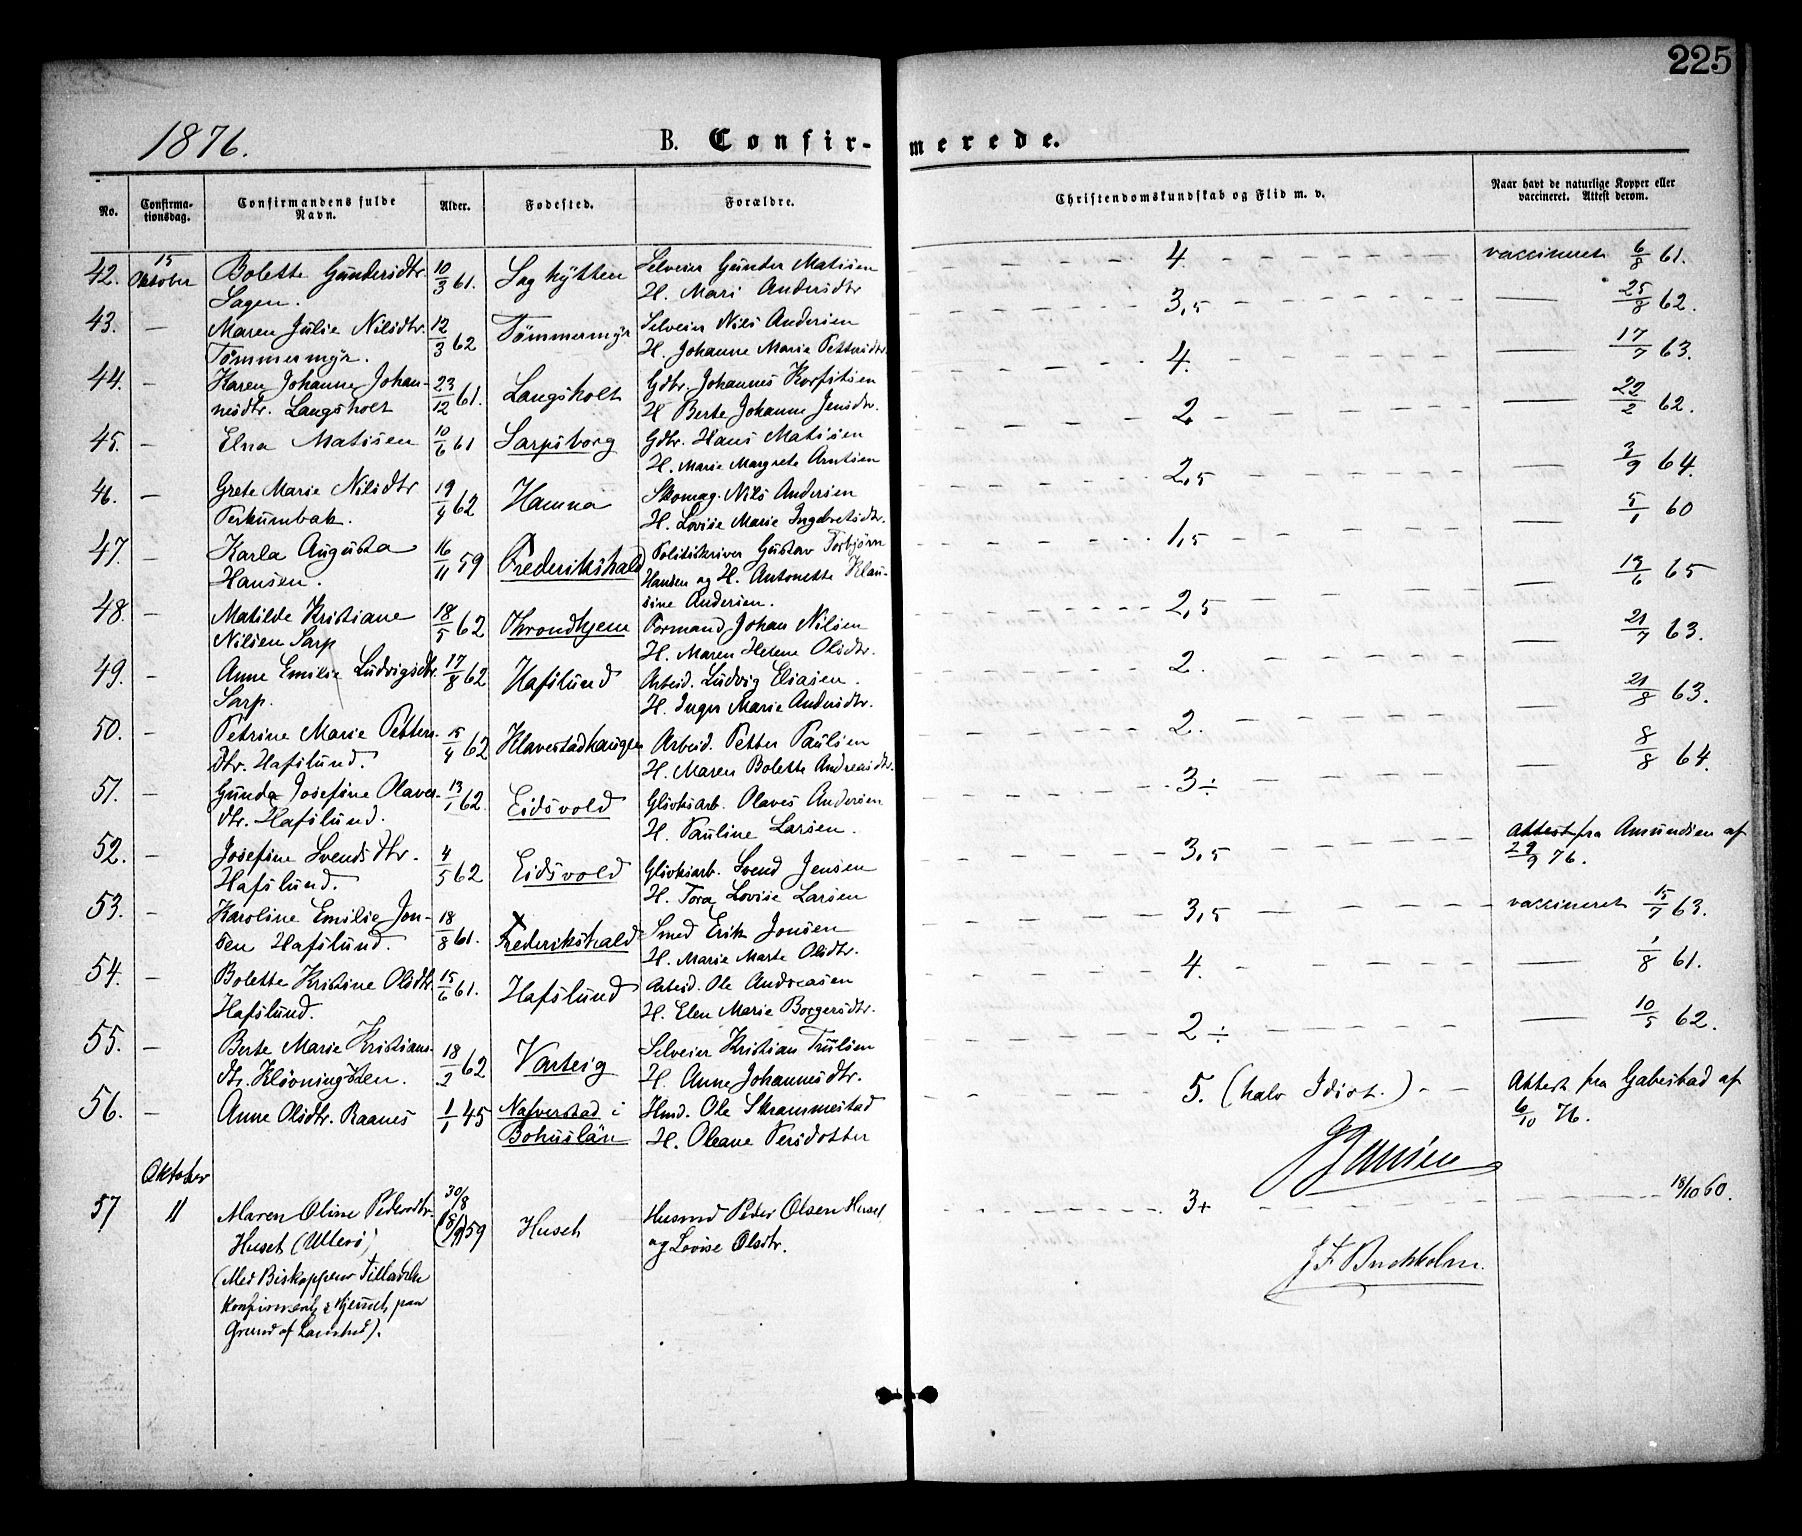 225
1876.
B. Confir- merede.
No.
Confirma-
tionsdag.
Confirmandens fulde
Navn.
Alder.
Fødested.
Forældre.
Christendomskundskab og Flid m. v.
Naar havt de naturlige Kopper eller
vaccineret. Attest derom.
42. 15 Oktober Bolette Gundersdtr. 10/3 61. Saghytten Selveier Gunder Matisen 4. vaccineret 6/8 61.
Sagen. H. Mari Andersdtr
43. — Maren Julie Nilsdtr. 12/3 62 Tømmermyr Selveier Nils Andersen 3,5 — 25/8 62.
Tømmermyr. H. Johanne Marie Pettersdtr.
44. — Karen Johanne Johan- 23/12 61. Langsholt Gdbr. Johannes Korfitsen 4. — 17/7 63.
nesdtr. Langsholt H. Berte Johanne Jensdtr.
45. — Elna Matisen 10/6 61 Sarpsborg Gdbr. Hans Matisen 2 — 22/2 62.
H. Marie Margrete Arntsen
46. — Grete Marie Nilsdtr 19/4 62 Hamna Skomag. Nils Andersen 2,5 — 3/9 64.
Perkumbak. H. Lovise Marie Ingebretsdtr.
47. — Karla Augusta 16/11 59 Frederikshald Politiskriver Gustav Torbjørn 1,5 — 5/1 60
Hansen. Hansen og H. Antonette Klau-
sine Andersen.
48. — Matilde Kristiane 18/5 62 Throndhjem Formand Johan Nilsen 2,5 — 19/6 65
Nilsen Sarp H. Maren Helene Olsdtr.
49. — Anne Emilie Ludvigsdtr. 17/8 62 Hafslund Arbeid. Ludvig Eliasen. 2. — 21/7 63.
Sarp. H. Inger Marie Andersdtr.
50. — Petrine Marie Petters- 15/4 62 Klavestadhaugen Arbeid. Petter Paulsen 2. — 21/8 63.
dtr. Hafslund. H. Maren Bolette Andreasdtr.
51. — Gunda Josefine Olaves- 13/1 62. Eidsvold Gliolsarb. Olaves Andersen 3÷ — 8/8 64.
dtr. Hafslund. H. Pauline Larsen.
52. — Josefine Svendsdtr. 4/5 62 Eidsvold Svend Jensen 3,5 Attest fra Amundsen af
Hafslund. H. Tora Lovise Larsen 29/9 76.
53. — Karoline Emilie Jon- 18/8 61. Frederikshald Smed Erik Jonsen 3,5 vaccineret 15/7 63.
sen Hafslund. H. Marie Marte Olsdtr.
54. — Bolette Kristine Olsdtr 15/6 61. Hafslund Arbeid. Ole Andreasen 4. — 1/8 61.
Hafslund. H. Elen Marie Borgersdtr.
55. — Berte Marie Kristians- 18/2 62 Varteig Selveier Kristian Trulsen 2÷ — 10/5 62.
dtr. H. Anne Johannesdtr.
56. — Anne Olsdtr. Raanes 1/1 45 Nafverstad i Hmd. Ole Skrammestad 5. (halv Idiot.) Attest fra Gabestad af
Bohuslän H. Oleane Persdotter 6/10 76.
Jensen
Oktober
57 11 Maren Oline Pedersdtr. 30/8 59 Huset Husmd Peder Olsen Huset 3+ 18/10 60.
Huset (Ullerø) og Lovise Olsdtr.
(Med Biskoppens Tilladelse J F Buchholm.
konfirmeret i Hjemmet paa
Grund af Lamhed).